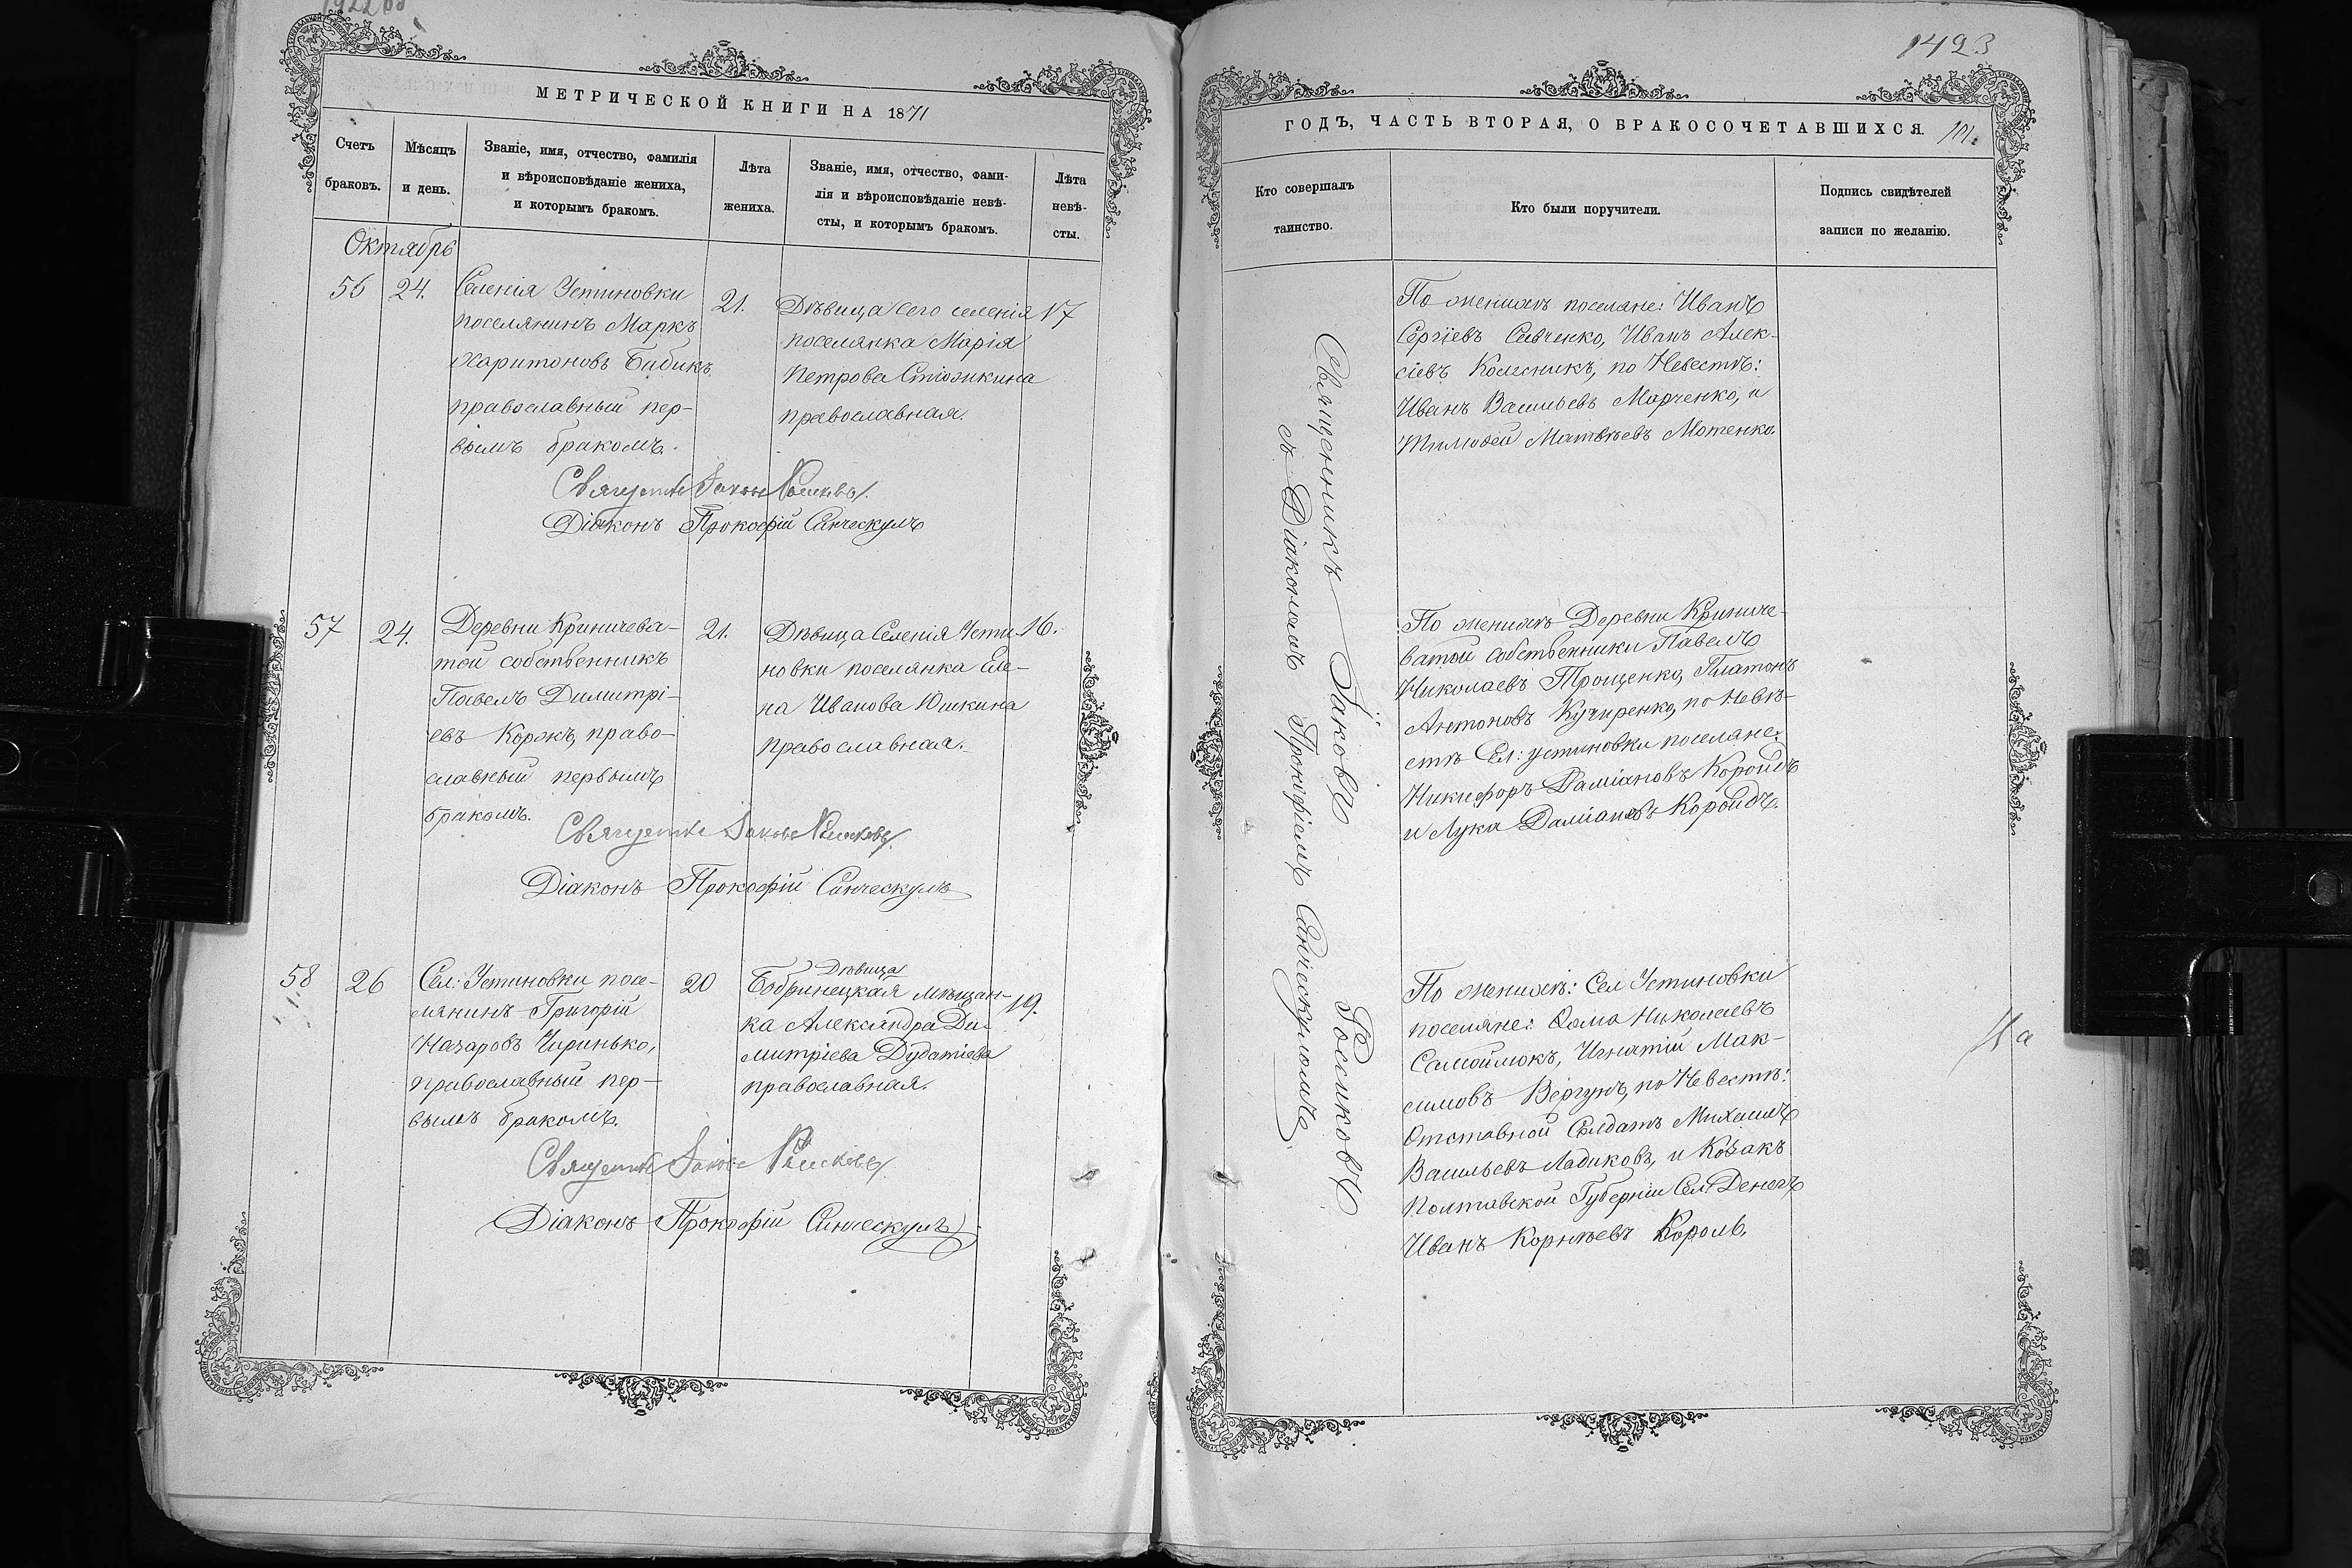 МЕТРИЧЕСКОЙ КНИГИ НА 1871
Счетъ браковъ.
Мѣсяцъ и день.
Званіе, имя, отчество, фамилія
и вѣроисповѣданіе жениха,
и которымъ бракомъ.
Лѣта жениха.
Званіе, имя, отчество, фами-
лія и вѣроисповѣданіе невѣ-
сты, и которымъ бракомъ.
Лѣта невѣ-
сты.
Октябрь
56
24.
Селенія Устиновки
поселянинъ Маркъ
Харитоновъ Бибикъ
православный пер-
вымъ бракомъ.
21.
Дѣвица сего селенія
поселянка Марія
Петрова
православная.
17
Діаконъ Прокофій
57
24.
Деревни Криничева-
той собственникъ
Павелъ Димитрі-
евъ Коржъ, право-
славный первымъ
бракомъ.
21.
Дѣвица Селенія Усти-
новки поселянка Еле-
на Иванова Юшкина
православная.
16.
Діаконъ Прокофій
58
26
Сел: Устиновки посе-
лянинъ Григорій
Назаровъ Чиринько,
православный пер-
вымъ бракомъ.
20
Дѣвица
Бобринецкая мѣщан-
ка Александра Ди-
митріева
православная.
19.
Діаконъ Прокофій
1423
ГОДЪ, ЧАСТЬ ВТОРАЯ, О БРАКОСОЧЕТАВШИХСЯ.
101.
Кто совершалъ
таинство.
Кто были поручители.
Подпись свидѣтелей
записи по желанію.
Священникъ Іаковъ
съ Діакономъ Прокофіемъ
По женихѣ поселяне: Иванъ
Сергіевъ Савченко, Иванъ Алек-
сіевъ Колесникъ, по Невестѣ:
Иванъ Васильевъ Марченко, и
Тимофей Матвѣевъ Мотенко.
По женихѣ Деревни Криниче-
ватой собственники Павелъ
Николаевъ Трощенко, Платонъ
Антоновъ Кучиренко, по Невѣ-
стѣ Сел: Устиновки поселяне:
Никифоръ Даміановъ Короидъ
и Лука Даміановъ Короидъ.
По женихѣ: Сел Устиновки
поселяне: Фома Николаевъ
Самойлюкъ, Игнатій Мак-
симовъ Вергунъ, по Невестѣ:
Отставной Солдатъ Михаилъ
Васильевъ Ладиковъ, и Козакъ
Полтавской Губерніи Сел:
Иванъ Корнѣевъ Король.